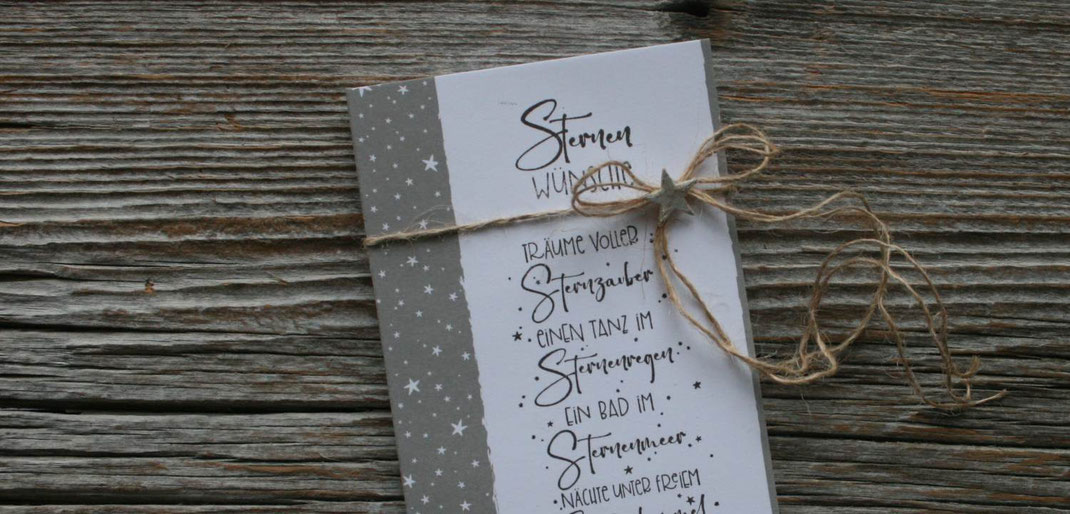 Sternen
WÜNSCHE
TRÄUME VOLLER
Sternzauber
EINEN TANZ IM
Sternenregen
EIN BAD IM
Sternenmeer
NÄCHTE UNTER FREIEM